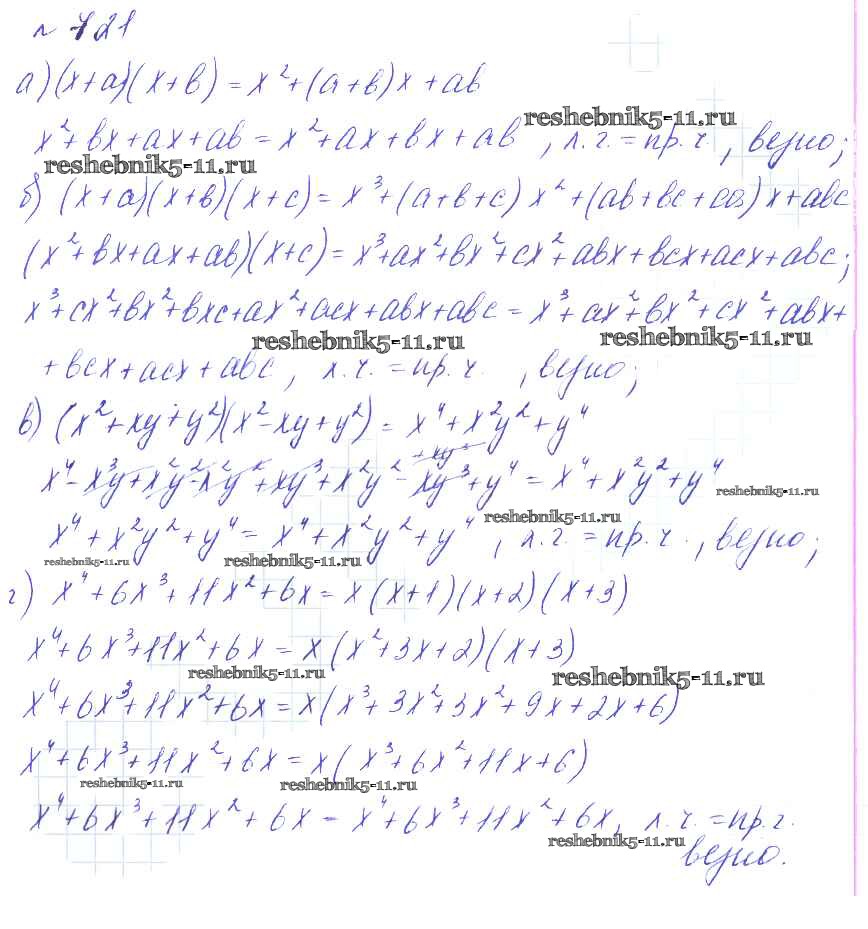 № 721
а) (x+a)(x+в) = x²+(a+в)x+aв
x²+вx+ax+aв = x²+ax+вx+aв, л.ч.=пр.ч., верно;
reshebnik5-11.ru
reshebnik5-11.ru
б) (x+a)(x+в)(x+c) = x³+(a+в+c)x²+(aв+вc+ca)x+aвc
(x²+вx+ax+aв)(x+c) = x³+ax²+вx²+cx²+aвx+вcx+acx+aвc;
x³+cx²+вx²+вxc+ax²+acx+aвx+aвc = x³+ax²+вx²+cx²+aвx+
reshebnik5-11.ru reshebnik5-11.ru
+вcx+acx+aвc, л.ч.=пр.ч., верно;
в) (x²+xy+y²)(x²-xy+y²) = x⁴+x²y²+y⁴
+xy³
x⁴-x³y+x²y²-x²y²+xy³+x²y²-xy³+y⁴ = x⁴+x²y²+y⁴
reshebnik5-11.ru
reshebnik5-11.ru
x⁴+x²y²+y⁴ = x⁴+x²y²+y⁴, л.ч.=пр.ч., верно;
reshebnik5-11.ru reshebnik5-11.ru
г) x⁴+6x³+11x²+6x = x(x+1)(x+2)(x+3)
x⁴+6x³+11x²+6x = x(x²+3x+2)(x+3)
reshebnik5-11.ru reshebnik5-11.ru
x⁴+6x³+11x²+6x = x(x³+3x²+3x²+9x+2x+6)
x⁴+6x³+11x²+6x = x(x³+6x²+11x+6)
reshebnik5-11.ru reshebnik5-11.ru
x⁴+6x³+11x²+6x = x⁴+6x³+11x²+6x, л.ч.=пр.ч.
reshebnik5-11.ru
верно.